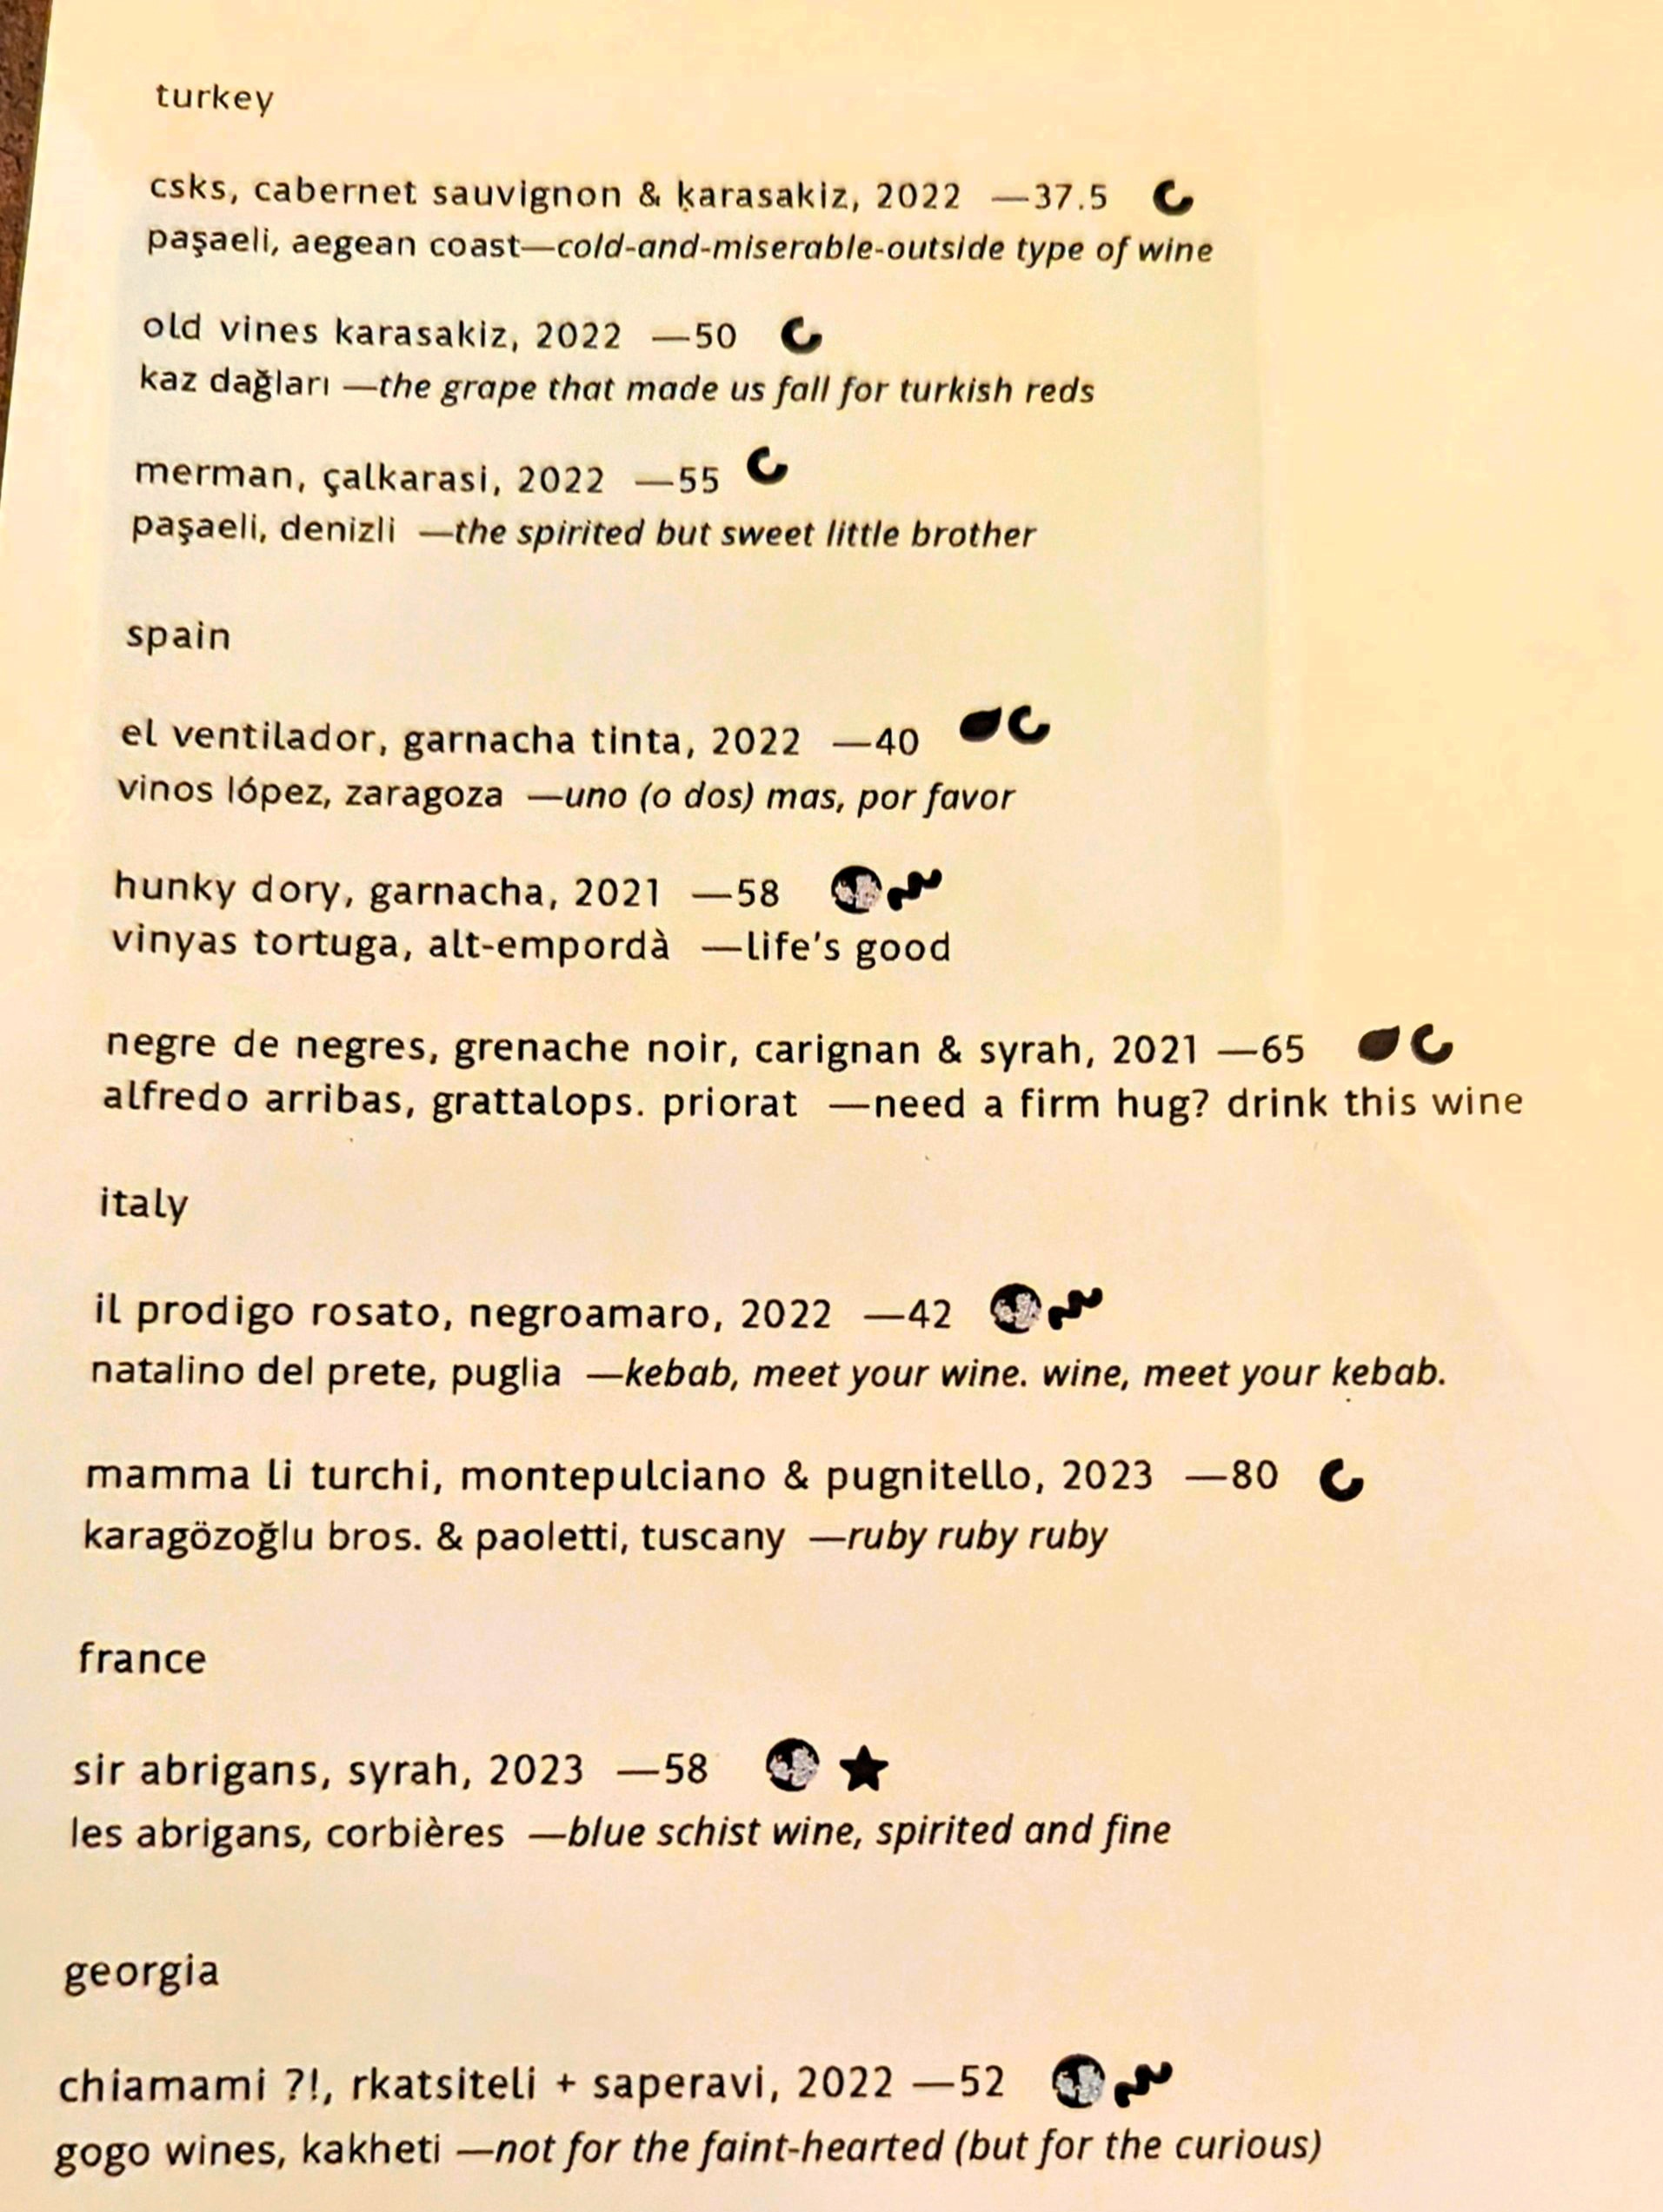 turkey
csks, cabernet sauvignon & karasakiz, 2022 —37.5
paşaeli, aegean coast—cold-and-miserable-outside type of wine
old vines karasakiz, 2022 —50
kaz dağları —the grape that made us fall for turkish reds
merman, çalkarasi, 2022 —55
paşaeli, denizli —the spirited but sweet little brother
spain
el ventilador, garnacha tinta, 2022 —40
vinos lópez, zaragoza —uno (o dos) mas, por favor
hunky dory, garnacha, 2021 —58
vinyas tortuga, alt-empordà —life's good
negre de negres, grenache noir, carignan & syrah, 2021 —65
alfredo arribas, grattalops. priorat —need a firm hug? drink this wine
italy
il prodigo rosato, negroamaro, 2022 —42
natalino del prete, puglia —kebab, meet your wine. wine, meet your kebab.
mamma li turchi, montepulciano & pugnitello, 2023 —80
karagözoğlu bros. & paoletti, tuscany —ruby ruby ruby
france
sir abrigans, syrah, 2023 —58
les abrigans, corbières —blue schist wine, spirited and fine
georgia
chiamami ?!, rkatsiteli + saperavi, 2022 —52
gogo wines, kakheti —not for the faint-hearted (but for the curious)